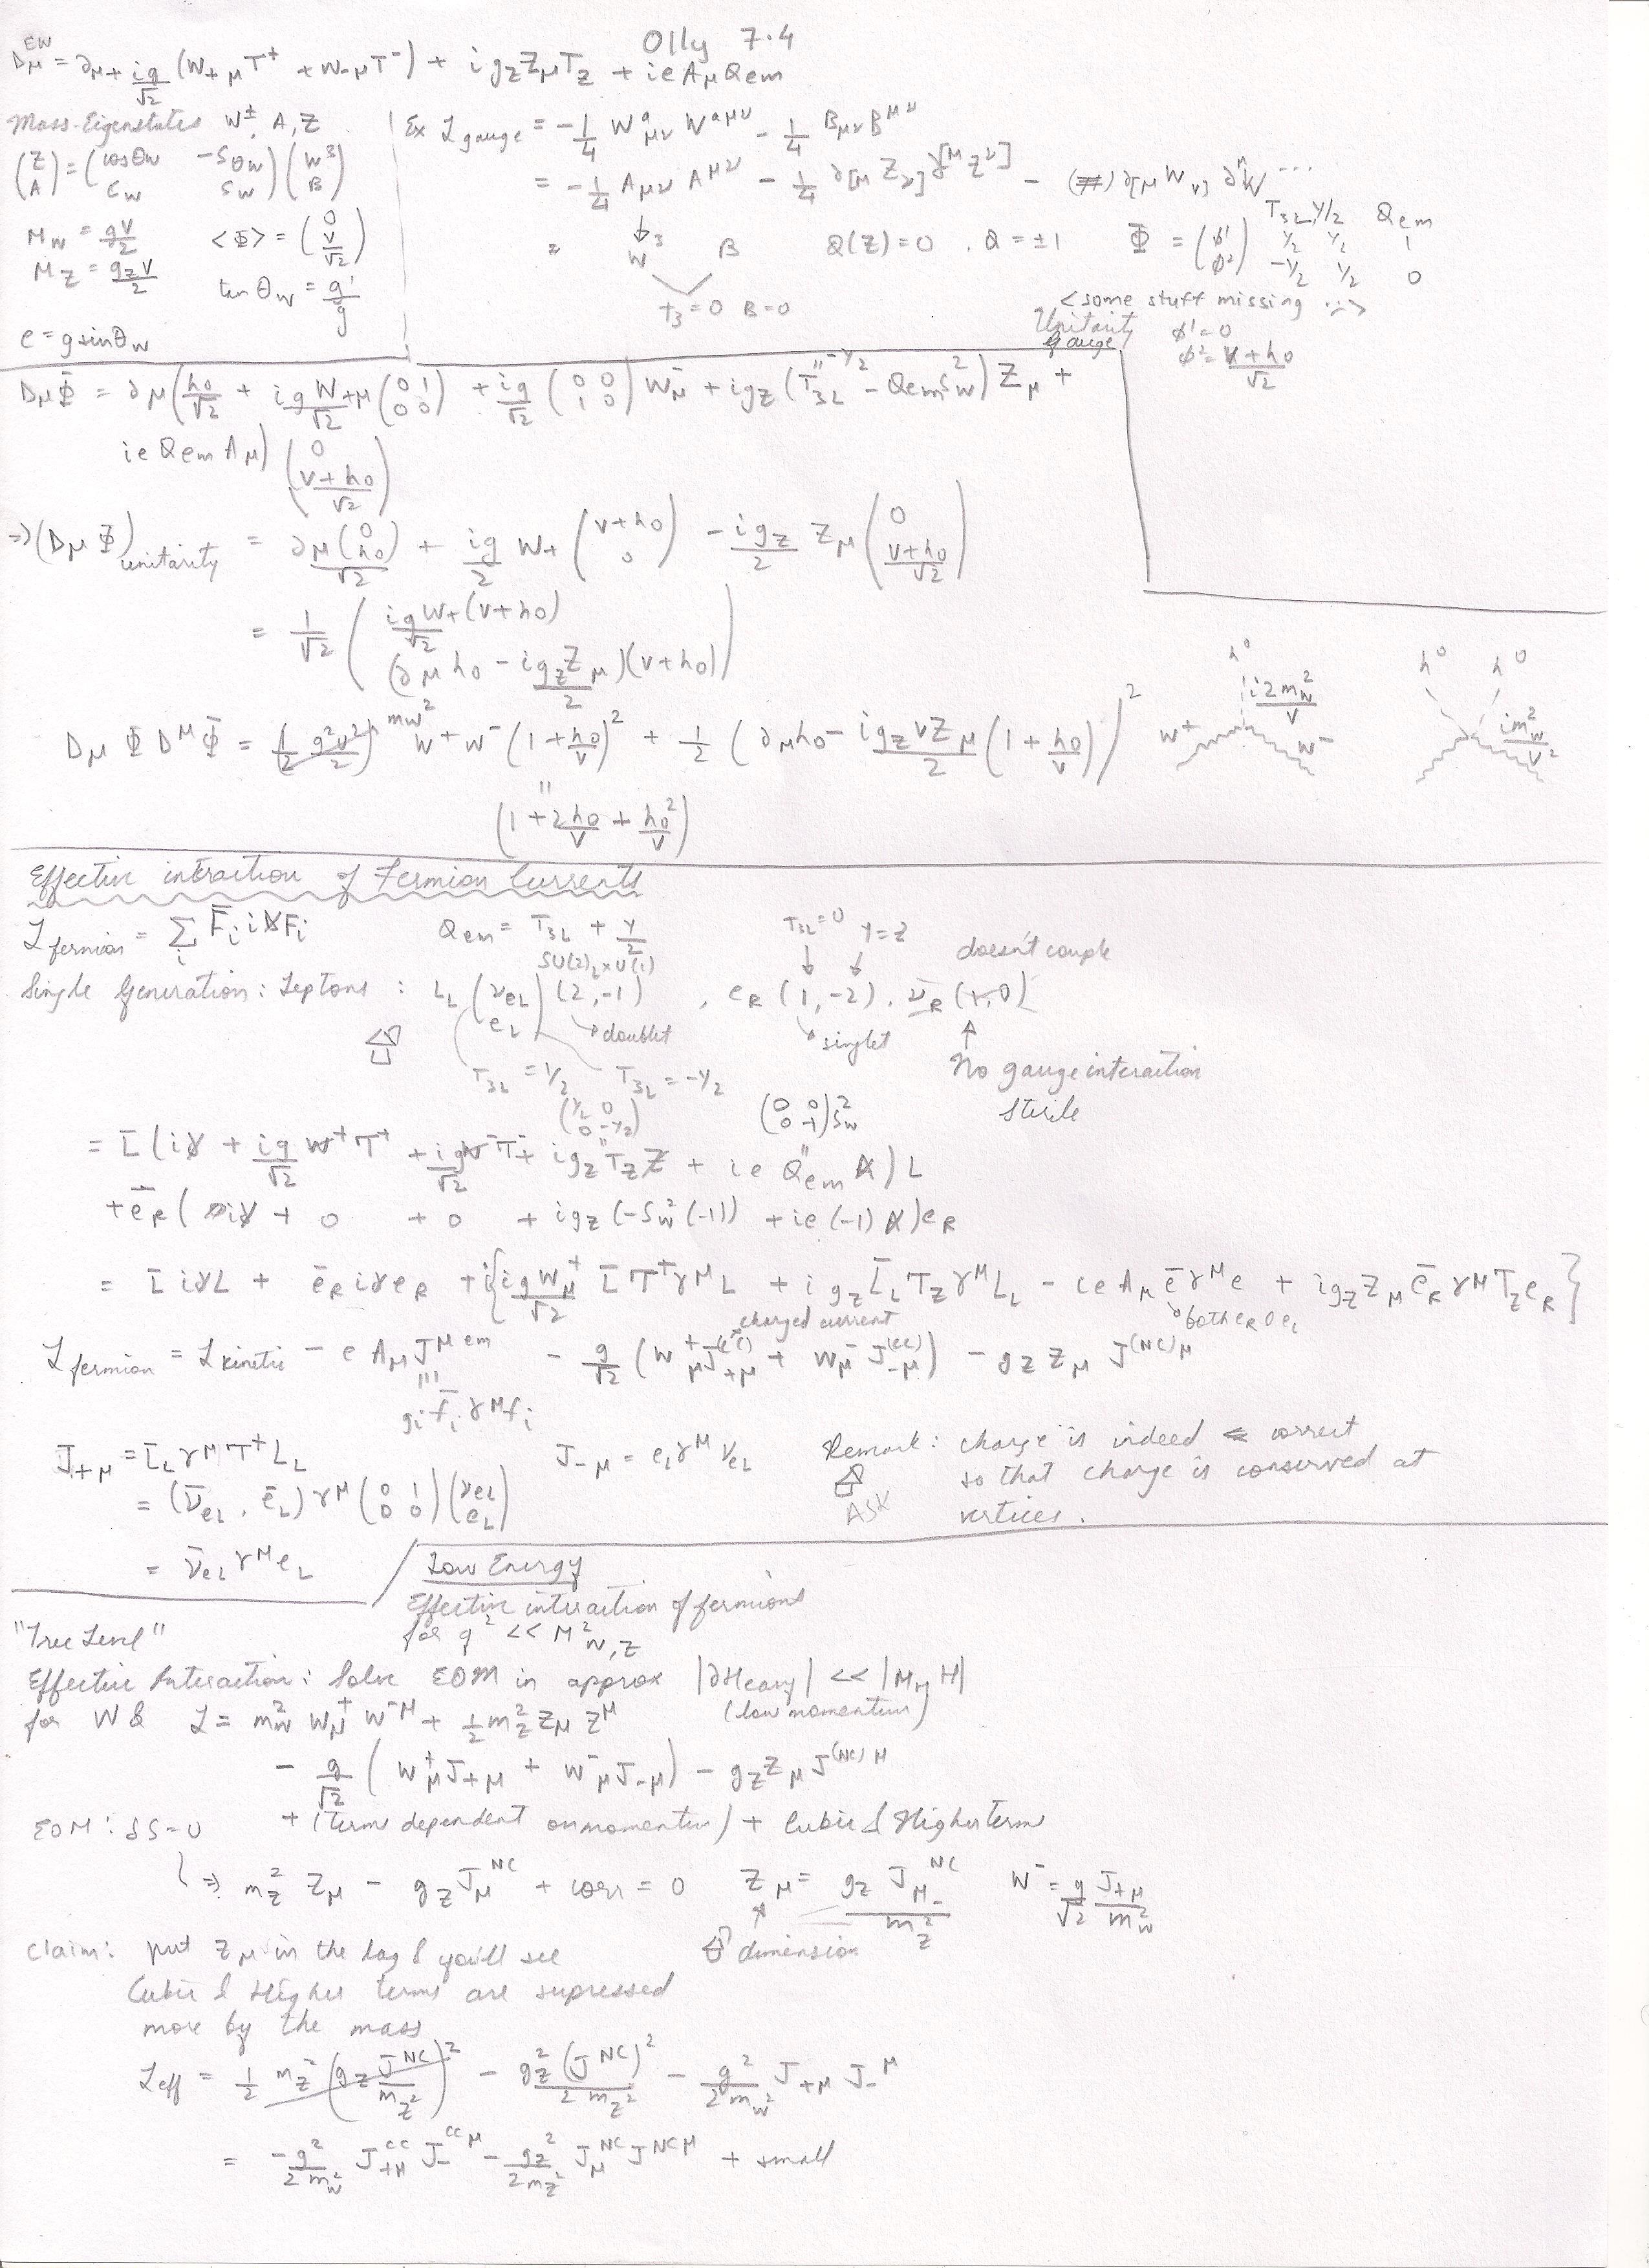 Olly 7.4
D_μ^EW = ∂_μ + ig/√2 (W_{+μ}T^+ + W_{-μ}T^-) + i g_Z Z_μ T_Z + ieA_μ Q_em
Mass-Eigenstates W^±, A, Z
(Z A) = (cosθ_W -S_{θW} C_W S_W)(W^3 B)
M_W = gv/2 <Φ> = (0 v/√2)
M_Z = g_Z v/2 tan θ_W = g'/g
e = g sinθ_W
Ex ℒ_gauge = -1/4 W^a_{μν} W^{aμν} - 1/4 B_{μν}B^{μν}
= -1/4 A_{μν} A^{μν} - 1/4 ∂_{[μ} Z_{ν]} ∂^{[μ} Z^{ν]} - (#) ∂_{[μ} W_{ν]} ∂^μ W ...
= W^3 B Q(Z)=0 . Q = ±1
T_3=0 B=0
T_{3L} Y/2 Q_em
Φ = (φ^1 φ^2) 1/2 1/2 1
-1/2 1/2 0
<some stuff missing :->
Unitarity Gauge φ^1=0
φ^2 = v+h_0/√2
D_μΦ = ∂_μ(h_0/√2 + ig W_{+μ}/√2 (0 1 0 0) + ig/√2 (0 0 1 0) W^-_μ + ig_Z (T_{3L}^{" -1/2} - Q_em S_W^2) Z_μ +
ie Q_em A_μ) (0 v+h_0/√2)
⇒ (D_μ Φ)_unitarity = ∂_μ(0 h_0)/√2 + ig/2 W_+ (v+h_0 0) - ig_Z/2 Z_μ (0 v+h_0/√2)
= 1/√2 (ig W_+(v+h_0)/√2 (∂_μ h_0 - ig_Z Z_μ/2)(v+h_0))
D_μ Φ D^μ Φ = (1/2 g^2v^2/2)^{m_W^2} W^+ W^- (1+h_0/v)^2 + 1/2 (∂_μ h_0 - ig_Z v Z_μ/2 (1+h_0/v))^2
" (1+2h_0/v + h_0^2/v)
h^0 i2m_W^2/v W^+ W^-
h^0 h^0 im_W^2/v^2
Effective interaction of Fermion Currents
ℒ_fermion = Σ_i F̄_i iD̸F_i Q_em = T_{3L} + Y/2 T_{3L}=0 Y=2
SU(2)_L×U(1) doesn't couple
Single Generation: Leptons : L_L (ν_{eL} e_L) (2,-1) , e_R (1,-2) . ν_R (1,0)
→doublet →singlet
T_{3L} = 1/2 T_{3L} = -1/2 No gauge interaction
sterile
(1/2 0 0 -1/2) (0 0 0 -1)S_W^2
= L̄ (i∂̸ + ig/√2 W^+ T^+ + ig/√2 W^-T^- + ig_Z T_Z Z + ie Q_em A̸) L
+ ē_R (i∂̸ + 0 + 0 + ig_Z (-S_W^2 (-1)) + ie (-1) A̸)e_R
= L̄ i∂̸L + ē_R i∂̸e_R + i{ig W_μ^+/√2 L̄ T^+γ^μ L + i g_Z L̄_L T_Z γ^μ L_L - ieA_μ ē γ^μ e + ig_Z Z_μ ē_R γ^μ T_Z e_R}
charged current both e_R & e_L
ℒ_fermion = ℒ_kinetic - e A_μ J^{μ em} - g/√2 (W_μ^+ J_{+μ}^{(cc)} + W_μ^- J_{-μ}^{(cc)}) - g_Z Z_μ J^{(NC)μ}
≡ g_i f̄_i γ^μ f_i
J_{+μ} = L̄_L γ^μ T^+ L_L J_{-μ} = e_L γ^μ ν_{eL}
= (ν̄_{eL} , ē_L) γ^μ (0 1 0 0)(ν_{eL} e_L)
= ν̄_{eL} γ^μ e_L
Remark: charge is indeed correct
so that charge is conserved at
vertices.
ASK
Low Energy
Effective interaction of fermions
for q^2 << M^2_{W,Z}
"Tree Level"
Effective Interaction: Solve EOM in approx |∂Heavy| << |M_H H|
(low momentum)
for W & ℒ = m_W^2 W_μ^+ W^{-μ} + 1/2 m_Z^2 Z_μ Z^μ
- g/√2 (W_μ^+ J_{+μ} + W_μ^- J_{-μ}) - g_Z Z_μ J^{(NC)μ}
EOM: δS=0 + (terms dependent on momentum) + Cubic & Higher term
⇒ m_Z^2 Z_μ - g_Z J_μ^{NC} + corr = 0 Z_μ = g_Z J_μ^{NC}/m_Z^2 W^- = g/√2 J_{+μ}/m_W^2
dimension
Claim: put Z_μ in the lag & you'll see
Cubic & Higher terms are supressed
more by the mass
ℒ_eff = 1/2 m_Z^2 (g_Z J^{NC}/m_Z^2)^2 - g_Z^2 (J^{NC})^2/2 m_Z^2 - g^2/2m_W^2 J_{+μ} J_-^μ
= -g^2/2m_W^2 J_{+μ}^{cc} J_-^{ccμ} - g_Z^2/2m_Z^2 J_μ^{NC} J^{NCμ} + small